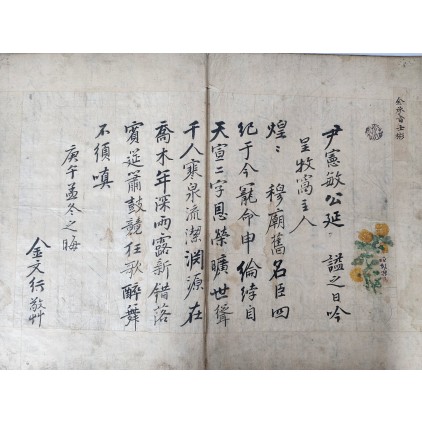 尹憲敏公延 諡之日吟
呈牧窩主人
煌〻 穆廟舊名臣四
紀于今寵命申綸綍自
天宣二字恩榮曠世聳
千人寒泉流潔淵源在
喬木年深雨露新錯落
賓筵簫鼓競狂歌醉舞
不須嗔
庚午孟冬之晦
金文行敬艸